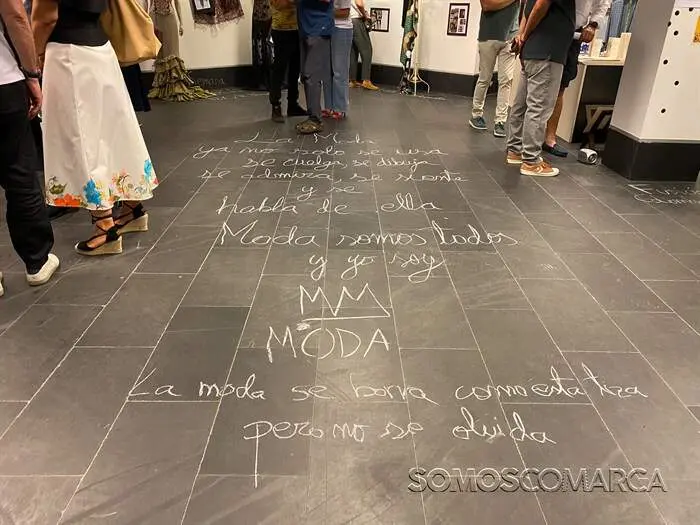 La Moda
ya no solo se usa
se cuelga, se dibuja
se admira, se siente
y se
habla de ella
Moda somos todos
y yo soy
MM
MODA
La moda se borra como esta tiza
pero no se olvida
SOMOSCOMARCA